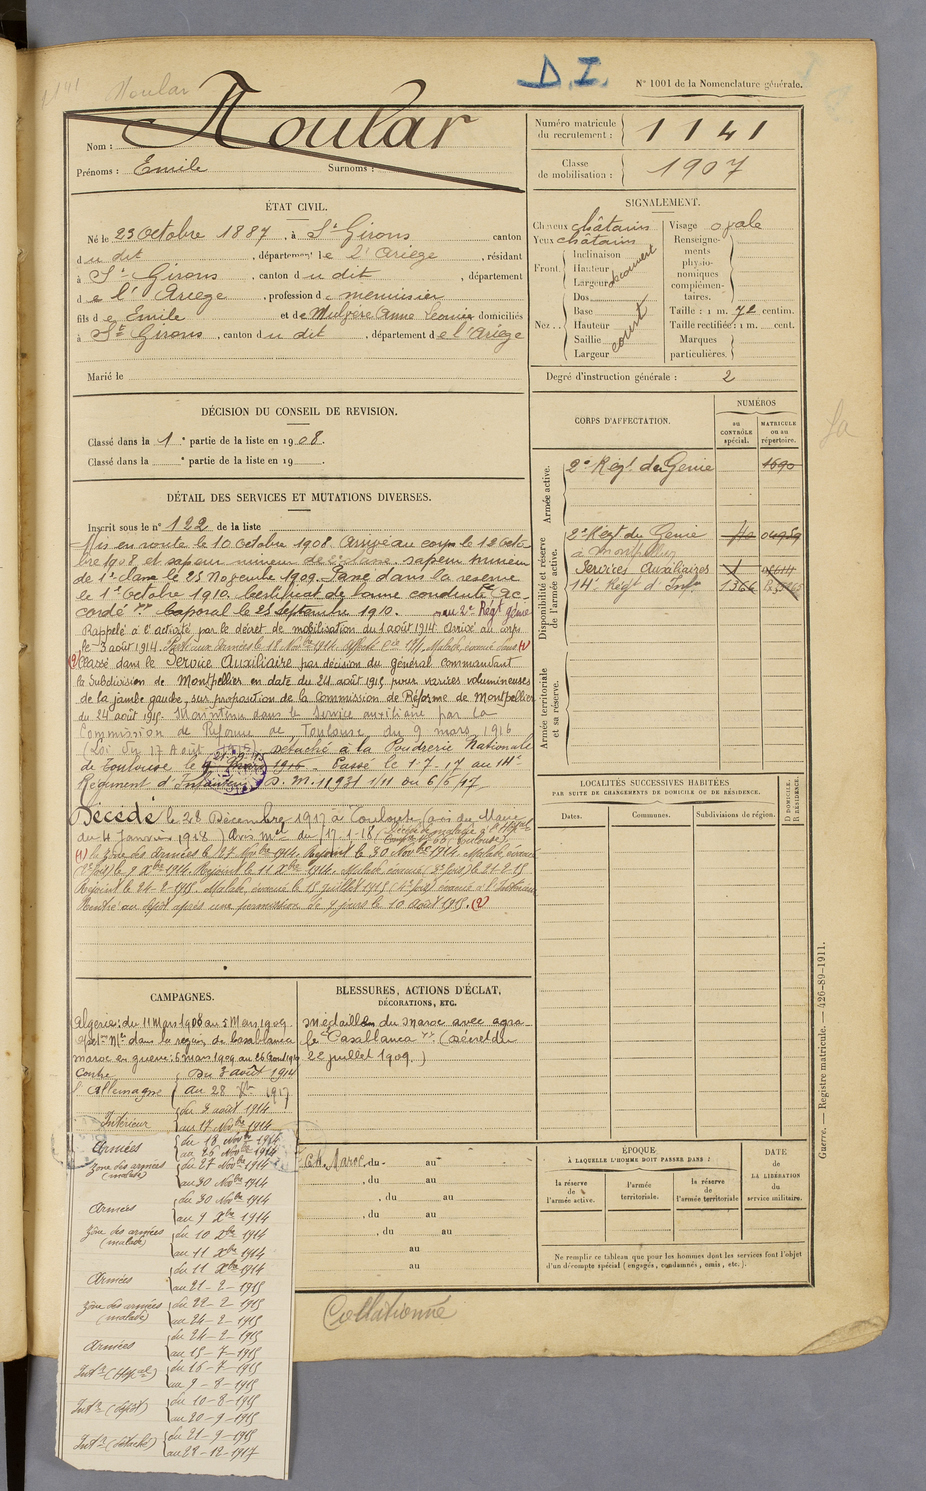 1141 Noular
D.I.
N° 1001 de la Nomenclature générale.
Nom : Noular
Prénoms : Emile Surnoms :
Numéro matricule du recrutement : 1141
Classe de mobilisation : 1907
ÉTAT CIVIL.
Né le 23 Octobre 1887, à St Girons canton
du dit, département de l'Ariège, résidant
à St Girons, canton du dit, département
de l'Ariège, profession de menuisier
fils de Emile et de Anne Léonie domiciliés
à St Girons, canton du dit, département de l'Ariège
Marié le
SIGNALEMENT.
Cheveux châtains Visage ovale
Yeux châtains Renseigne-
ments
physio-
nomiques
complémen-
taires.
Front. Inclinaison
Hauteur
Largeur découvert
Nez... Dos
Base
Hauteur
Saillie
Largeur court
Taille : 1 m. 72 centim.
Taille rectifiée : 1 m. cent.
Marques
particulières.
Degré d'instruction générale : 2
DÉCISION DU CONSEIL DE REVISION.
Classé dans la 1e partie de la liste en 1908.
Classé dans la e partie de la liste en 19 .
CORPS D'AFFECTATION.
NUMÉROS
au
CONTRÔLE
spécial.
MATRICULE
ou au
répertoire.
Armée active.
2e Régt du Génie 1690
Disponibilité et réserve
de l'armée active.
2e Régt du Génie
à Montpellier
Services Auxiliaires
14e Régt d'Infie 1366
Armée territoriale
et sa réserve.
DÉTAIL DES SERVICES ET MUTATIONS DIVERSES.
Inscrit sous le n° 122 de la liste
Mis en route le 10 Octobre 1908. Arrivé au corps le 12 Octo-
bre 1908 et sapeur mineur de 2e classe. sapeur mineur
de 1e classe le 25 Novembre 1909. Passé dans la réserve
le 1er Octobre 1910. Certificat de bonne conduite Ac-
cordé. Caporal le 25 Septembre 1910. au 2e Régt génie
Rappelé à l'activité par le décret de mobilisation du 1 août 1914. Arrivé au corps
le 3 août 1914. Parti aux armées le 18 Novbre 1914. Malade, évacué dans (1)
(2) Classé dans le Service Auxiliaire par décision du général commandant
la Subdivision de Montpellier en date du 24 août 1915 pour varices volumineuses
de la jambe gauche, sur proposition de la Commission de Réforme de Montpellier
du 24 août 1915. Maintenu dans le Service auxiliaire par la
Commission de Réforme de Toulouse du 9 mars 1916
(Loi du 17 Août 1915) Détaché à la Poudrerie Nationale
de Toulouse le 1916. Passé le 1-7-17 au 14e
Régiment d'Infanterie D.M. 11931 1/11 du 6/6/17
Décédé le 28 Décembre 1917 à Toulouse (avis du Maire
du 4 Janvier 1918) Avis Mel du 17-1-18
(1) la Zone des Armées le 27 Novbre 1914. Rejoint le 30 Novbre 1914. Malade, évacué
(2e fois) le 9 Xbre 1914. Rejoint le 11 Xbre 1914. Malade évacué (3e fois) le 21-2-15
Rejoint le 24-2-1915. Malade, évacué le 15 juillet 1915 (4e fois) évacué à l'Intérieur
Rentré au dépôt après une permission de 7 jours le 10 Août 1915. (2)
LOCALITÉS SUCCESSIVES HABITÉES
PAR SUITE DE CHANGEMENTS DE DOMICILE OU DE RÉSIDENCE.
Dates. Communes. Subdivisions de région. D DOMICILE. R RÉSIDENCE.
CAMPAGNES.
Algérie : du 11 Mars 1908 au 5 Mars 1909
dans la région de Casablanca
Maroc en guerre : 6 mars 1909 au 26 Aout 1909
Contre l'Allemagne Du 3 août 1914
au 28 Xbre 1917
Intérieur du 3 août 1914
au 17 Novbre 1914
Armées du 18 Novbre 1914
au 26 Novbre 1914
Zone des armées (malade) du 27 Novbre 1914
au 30 Novbre 1914
Armées du 30 Novbre 1914
au 9 Xbre 1914
Zone des armées (malade) du 10 Xbre 1914
au 11 Xbre 1914
Armées du 11 Xbre 1914
au 21-2-1915
Zone des armées (malade) du 22-2-1915
au 24-2-1915
Armées du 24-2-1915
au 15-7-1915
Intr (Hôpal) du 16-7-1915
au 9-8-1915
Intr (dépôt) du 10-8-1915
au 20-9-1915
Intr (détaché) du 21-9-1915
au 28-12-1917
BLESSURES, ACTIONS D'ÉCLAT,
DÉCORATIONS, ETC.
Médaille du Maroc avec agra-
fe "Casablanca". (Décret du
22 juillet 1909.)
C.H. Maroc, du au
, du au
, du au
, du au
, du au
au
au
ÉPOQUE
À LAQUELLE L'HOMME DOIT PASSER DANS :
la réserve
de
l'armée active.
l'armée
territoriale.
la réserve
de
l'armée territoriale
DATE
de
LA LIBÉRATION
du
service militaire.
Ne remplir ce tableau que pour les hommes dont les services font l'objet
d'un décompte spécial (engagés, condamnés, omis, etc.).
Guerre. — Registre matricule. — 426-89-1911.
Collationné